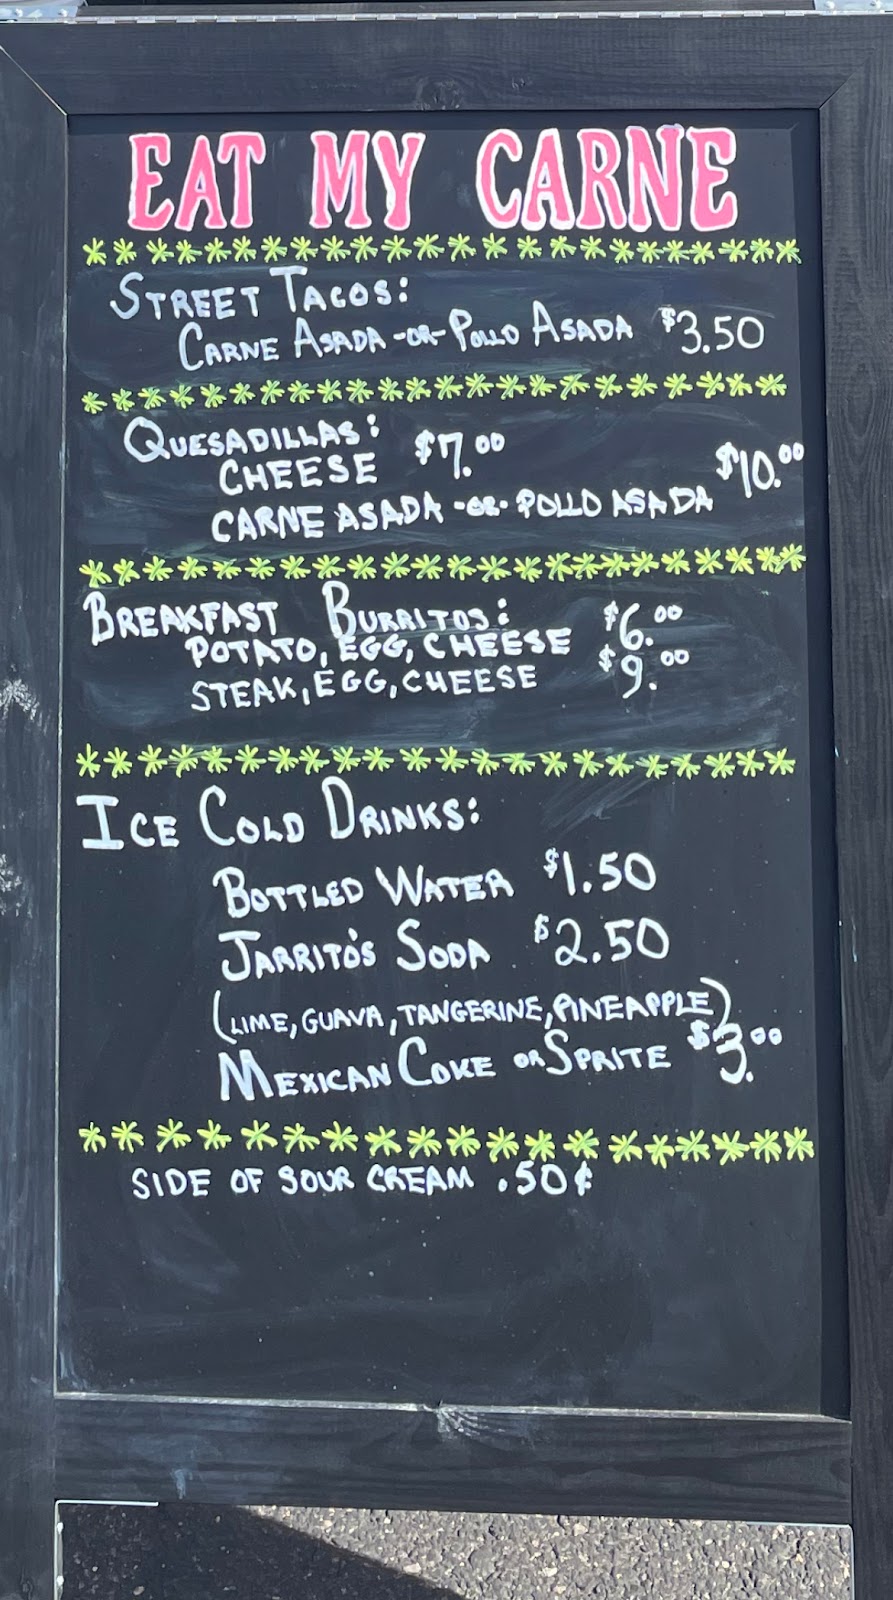 EAT MY CARNE
STREET TACOS:
CARNE ASADA -OR- POLLO ASADA $3.50
QUESADILLAS:
CHEESE $7.00
CARNE ASADA -OR- POLLO ASADA $10.00
BREAKFAST BURRITOS:
POTATO, EGG, CHEESE $6.00
STEAK, EGG, CHEESE $9.00
ICE COLD DRINKS:
BOTTLED WATER $1.50
JARRITO'S SODA $2.50
(LIME, GUAVA, TANGERINE, PINEAPPLE)
MEXICAN COKE OR SPRITE $3.00
SIDE OF SOUR CREAM .50¢